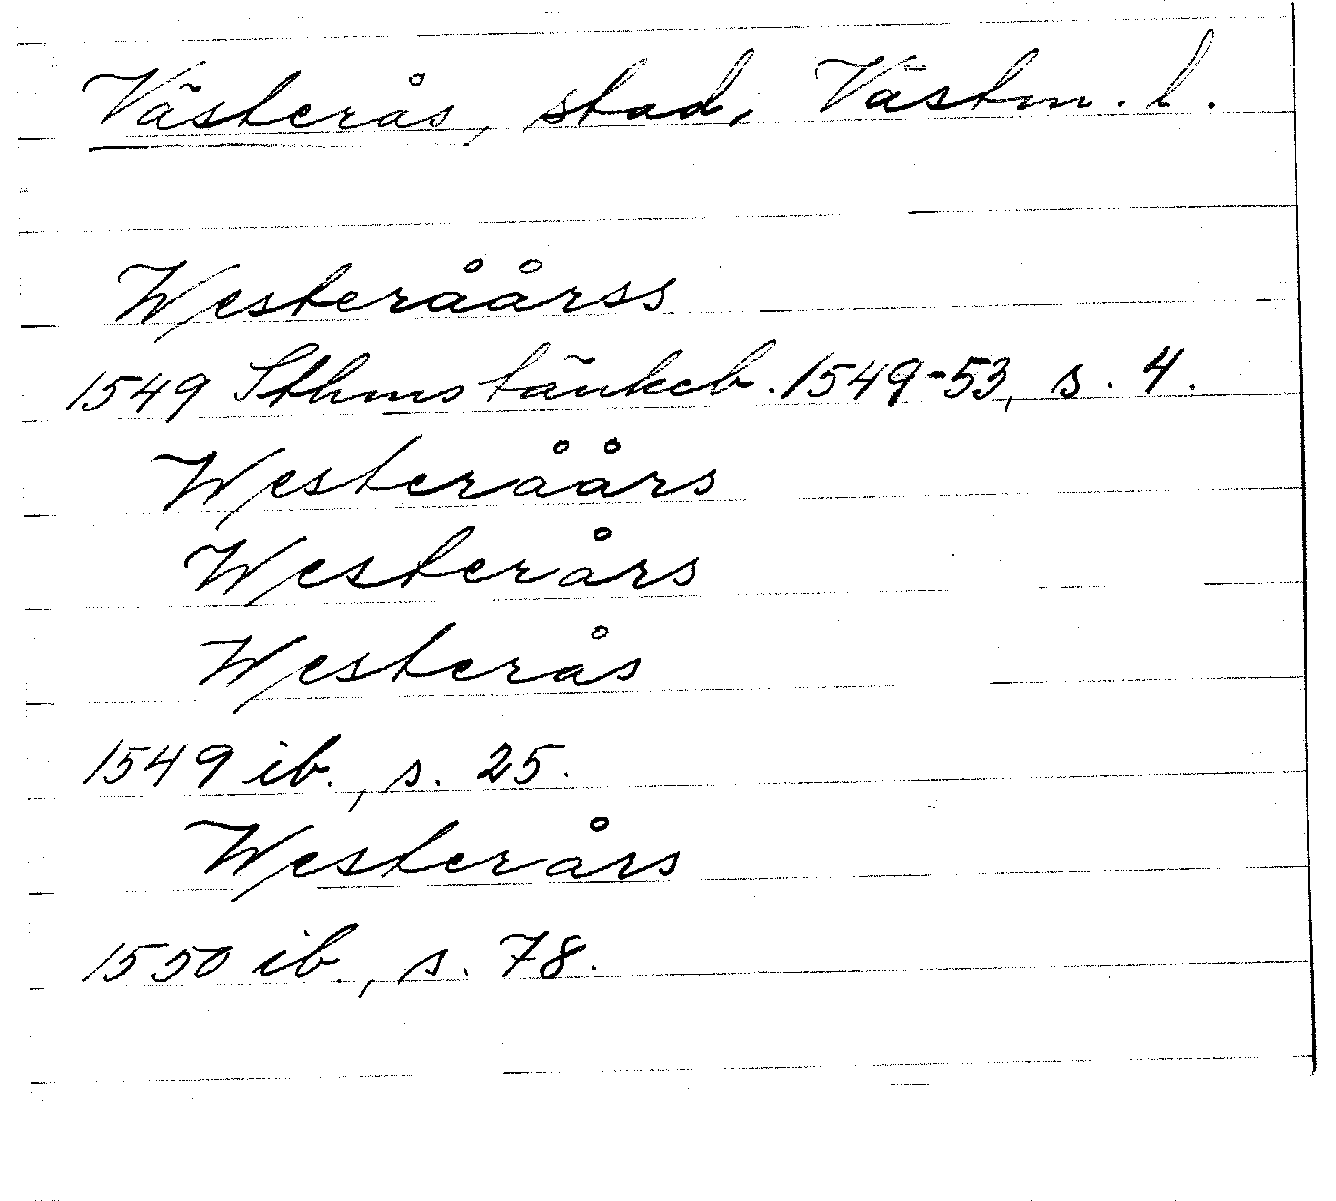 Västerås, stad, Västm. l.
Westeråårss
1549 Sthms tänkeb. 1549-53, s. 4.
Westeråårs
Westerårs
Westerås
1549 ib., s. 25.
Westerårs
1550 ib., s. 78.